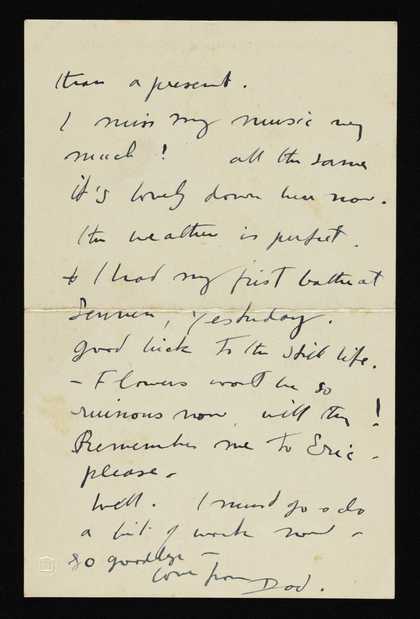 than a present.
I miss my music very
much! all the same
it's lovely down here now.
The weather is perfect.
& I had my first bathe at
Sennen, yesterday.
Good luck to the still life.
- Flowers won't be so
ruinous now will they!
Remember me to Eric -
please -
Well. I must go & do
a bit of work now -
so goodbye -
love from Dod.